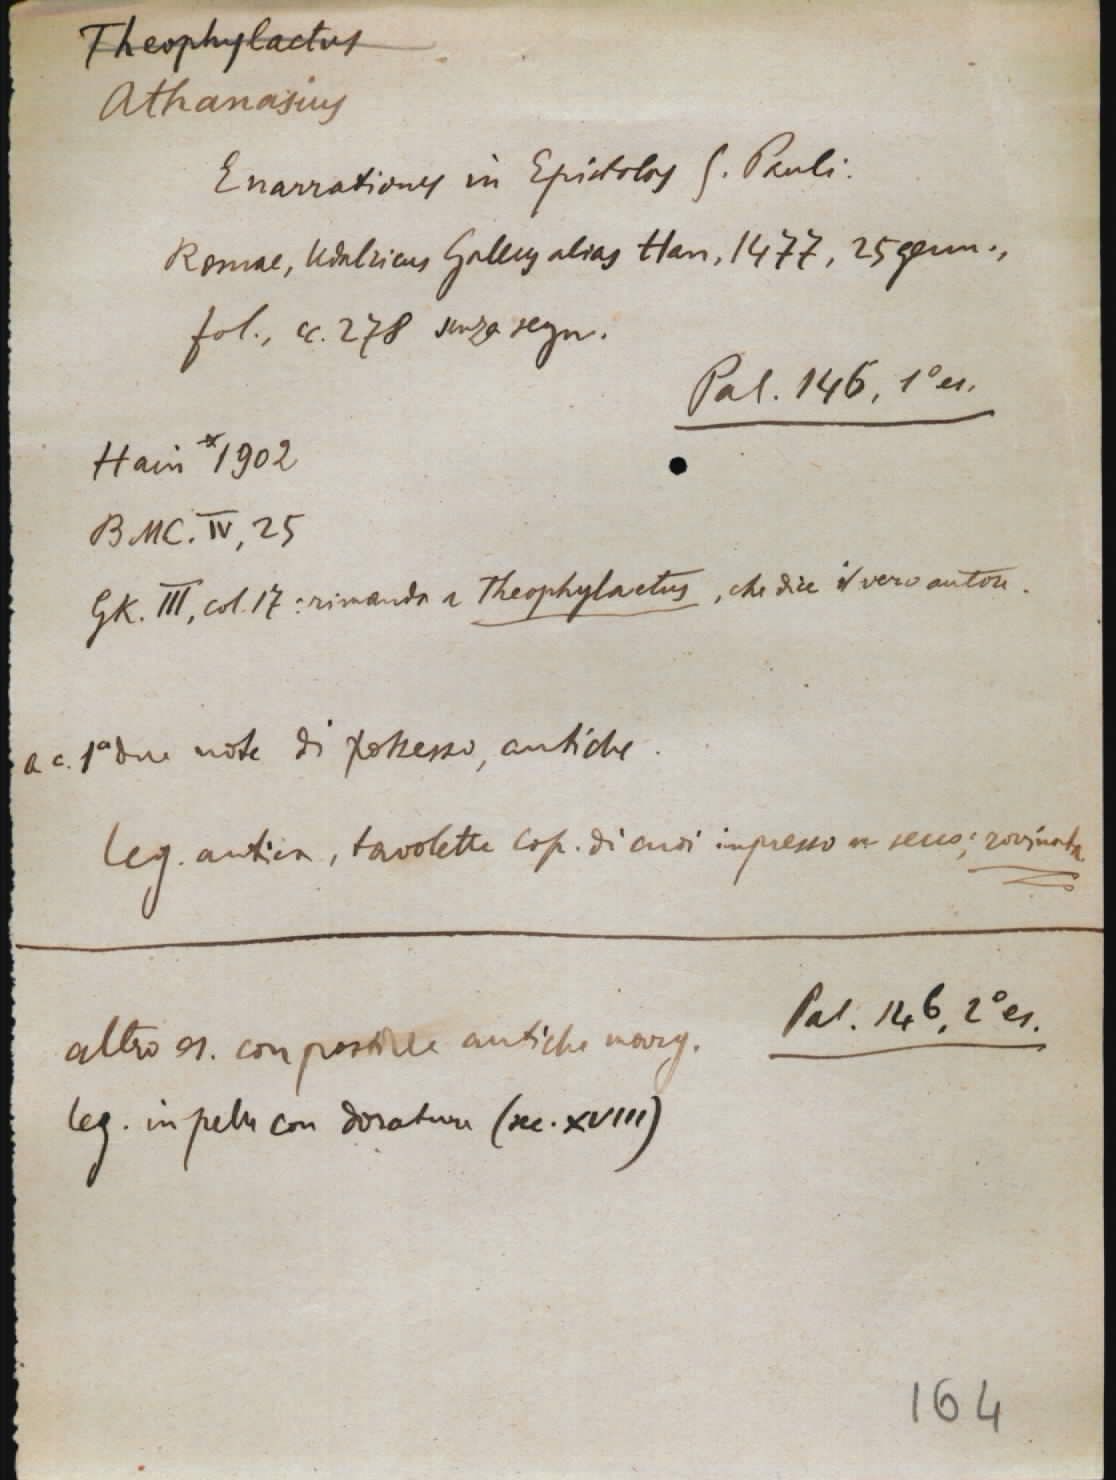 Theophylactus
Athanasius
Enarrationes in Epistolas S. Pauli.
Romae, Udalricus Gallus alias Han, 1477, 25 genn.,
fol., cc. 278 senza segn.
Pal. 146, 1° es.
Hain *1902
BMC. IV, 25
GK. III, col. 17: rimanda a Theophylactus, che dice il vero autore.
a c. 1ª due note di possesso, antiche.
Leg. antica, tavolette cop. di cuoi impresso a secco; rovinata
Pal. 146, 2° es.
altro es. con postille antiche marg.
leg. in pelle con dorature (sec. XVIII)
164